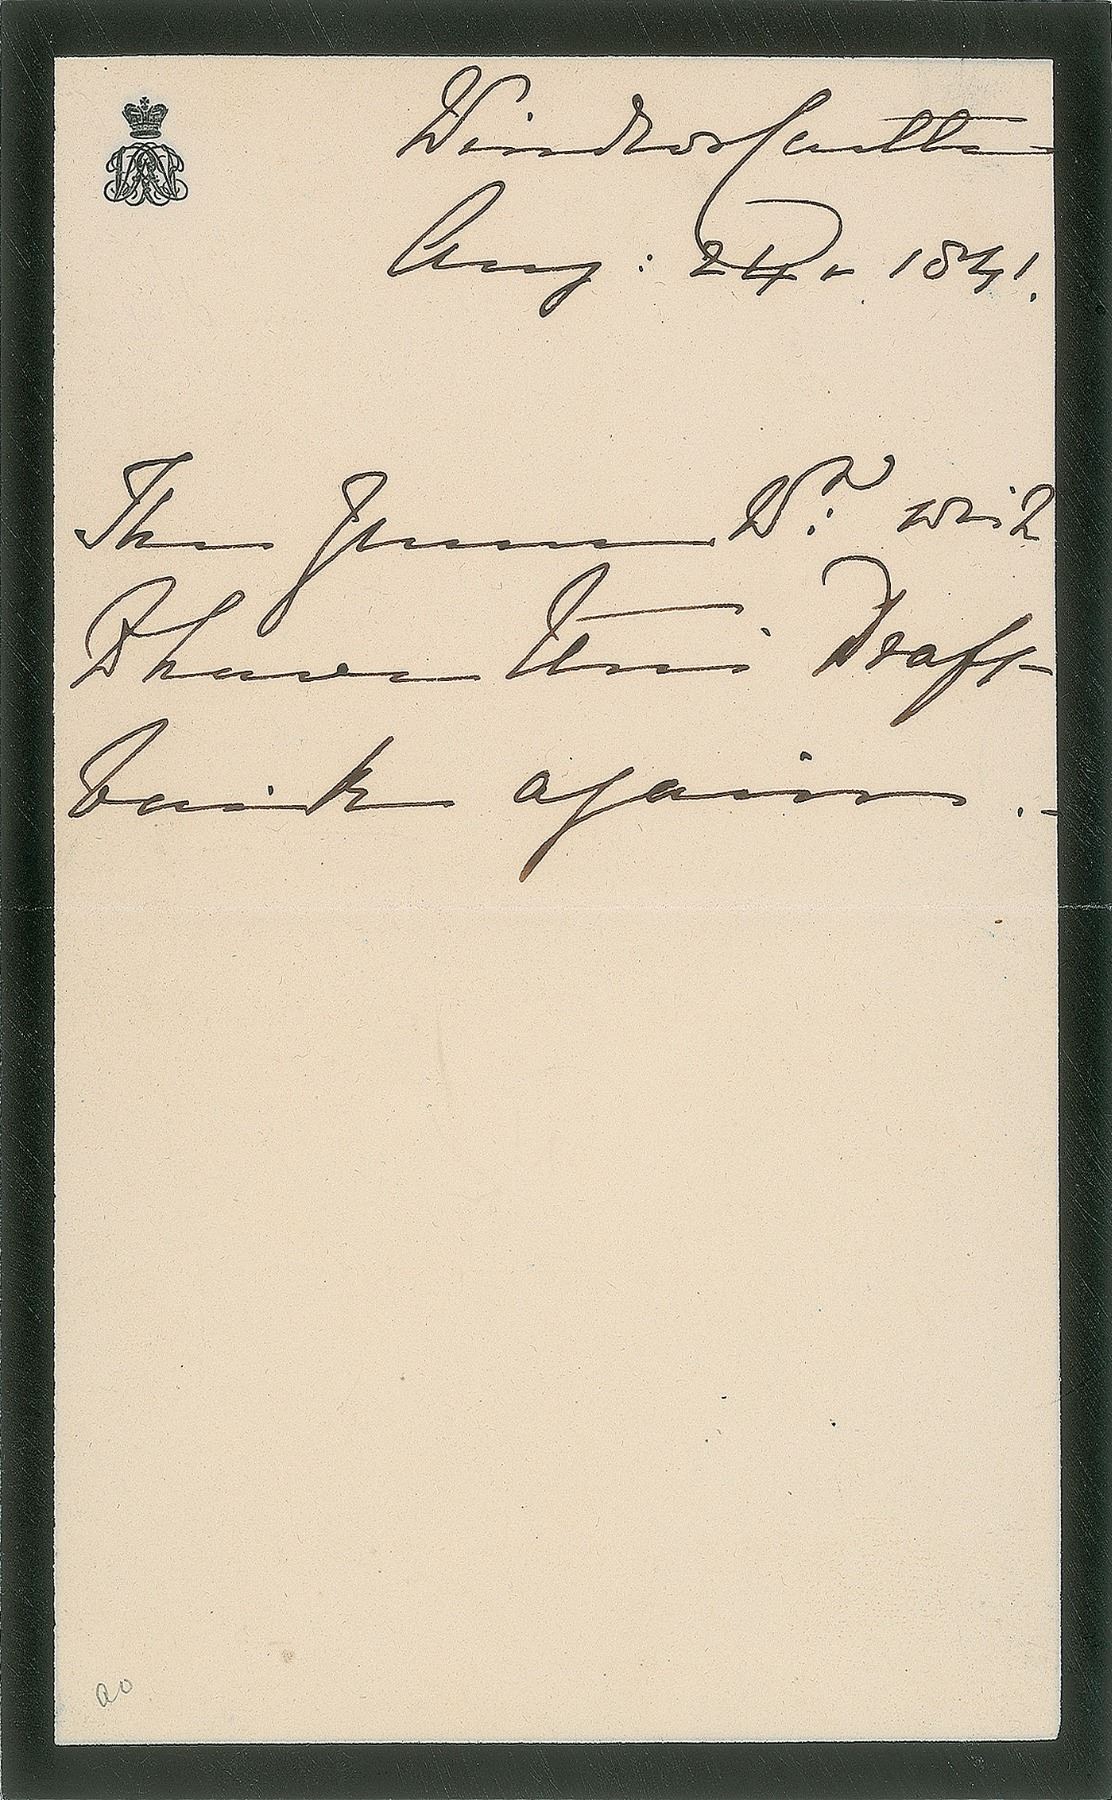 Windsor Castle
Aug: 24. 1841.
The Queen wish
to have this Draft
back again.-